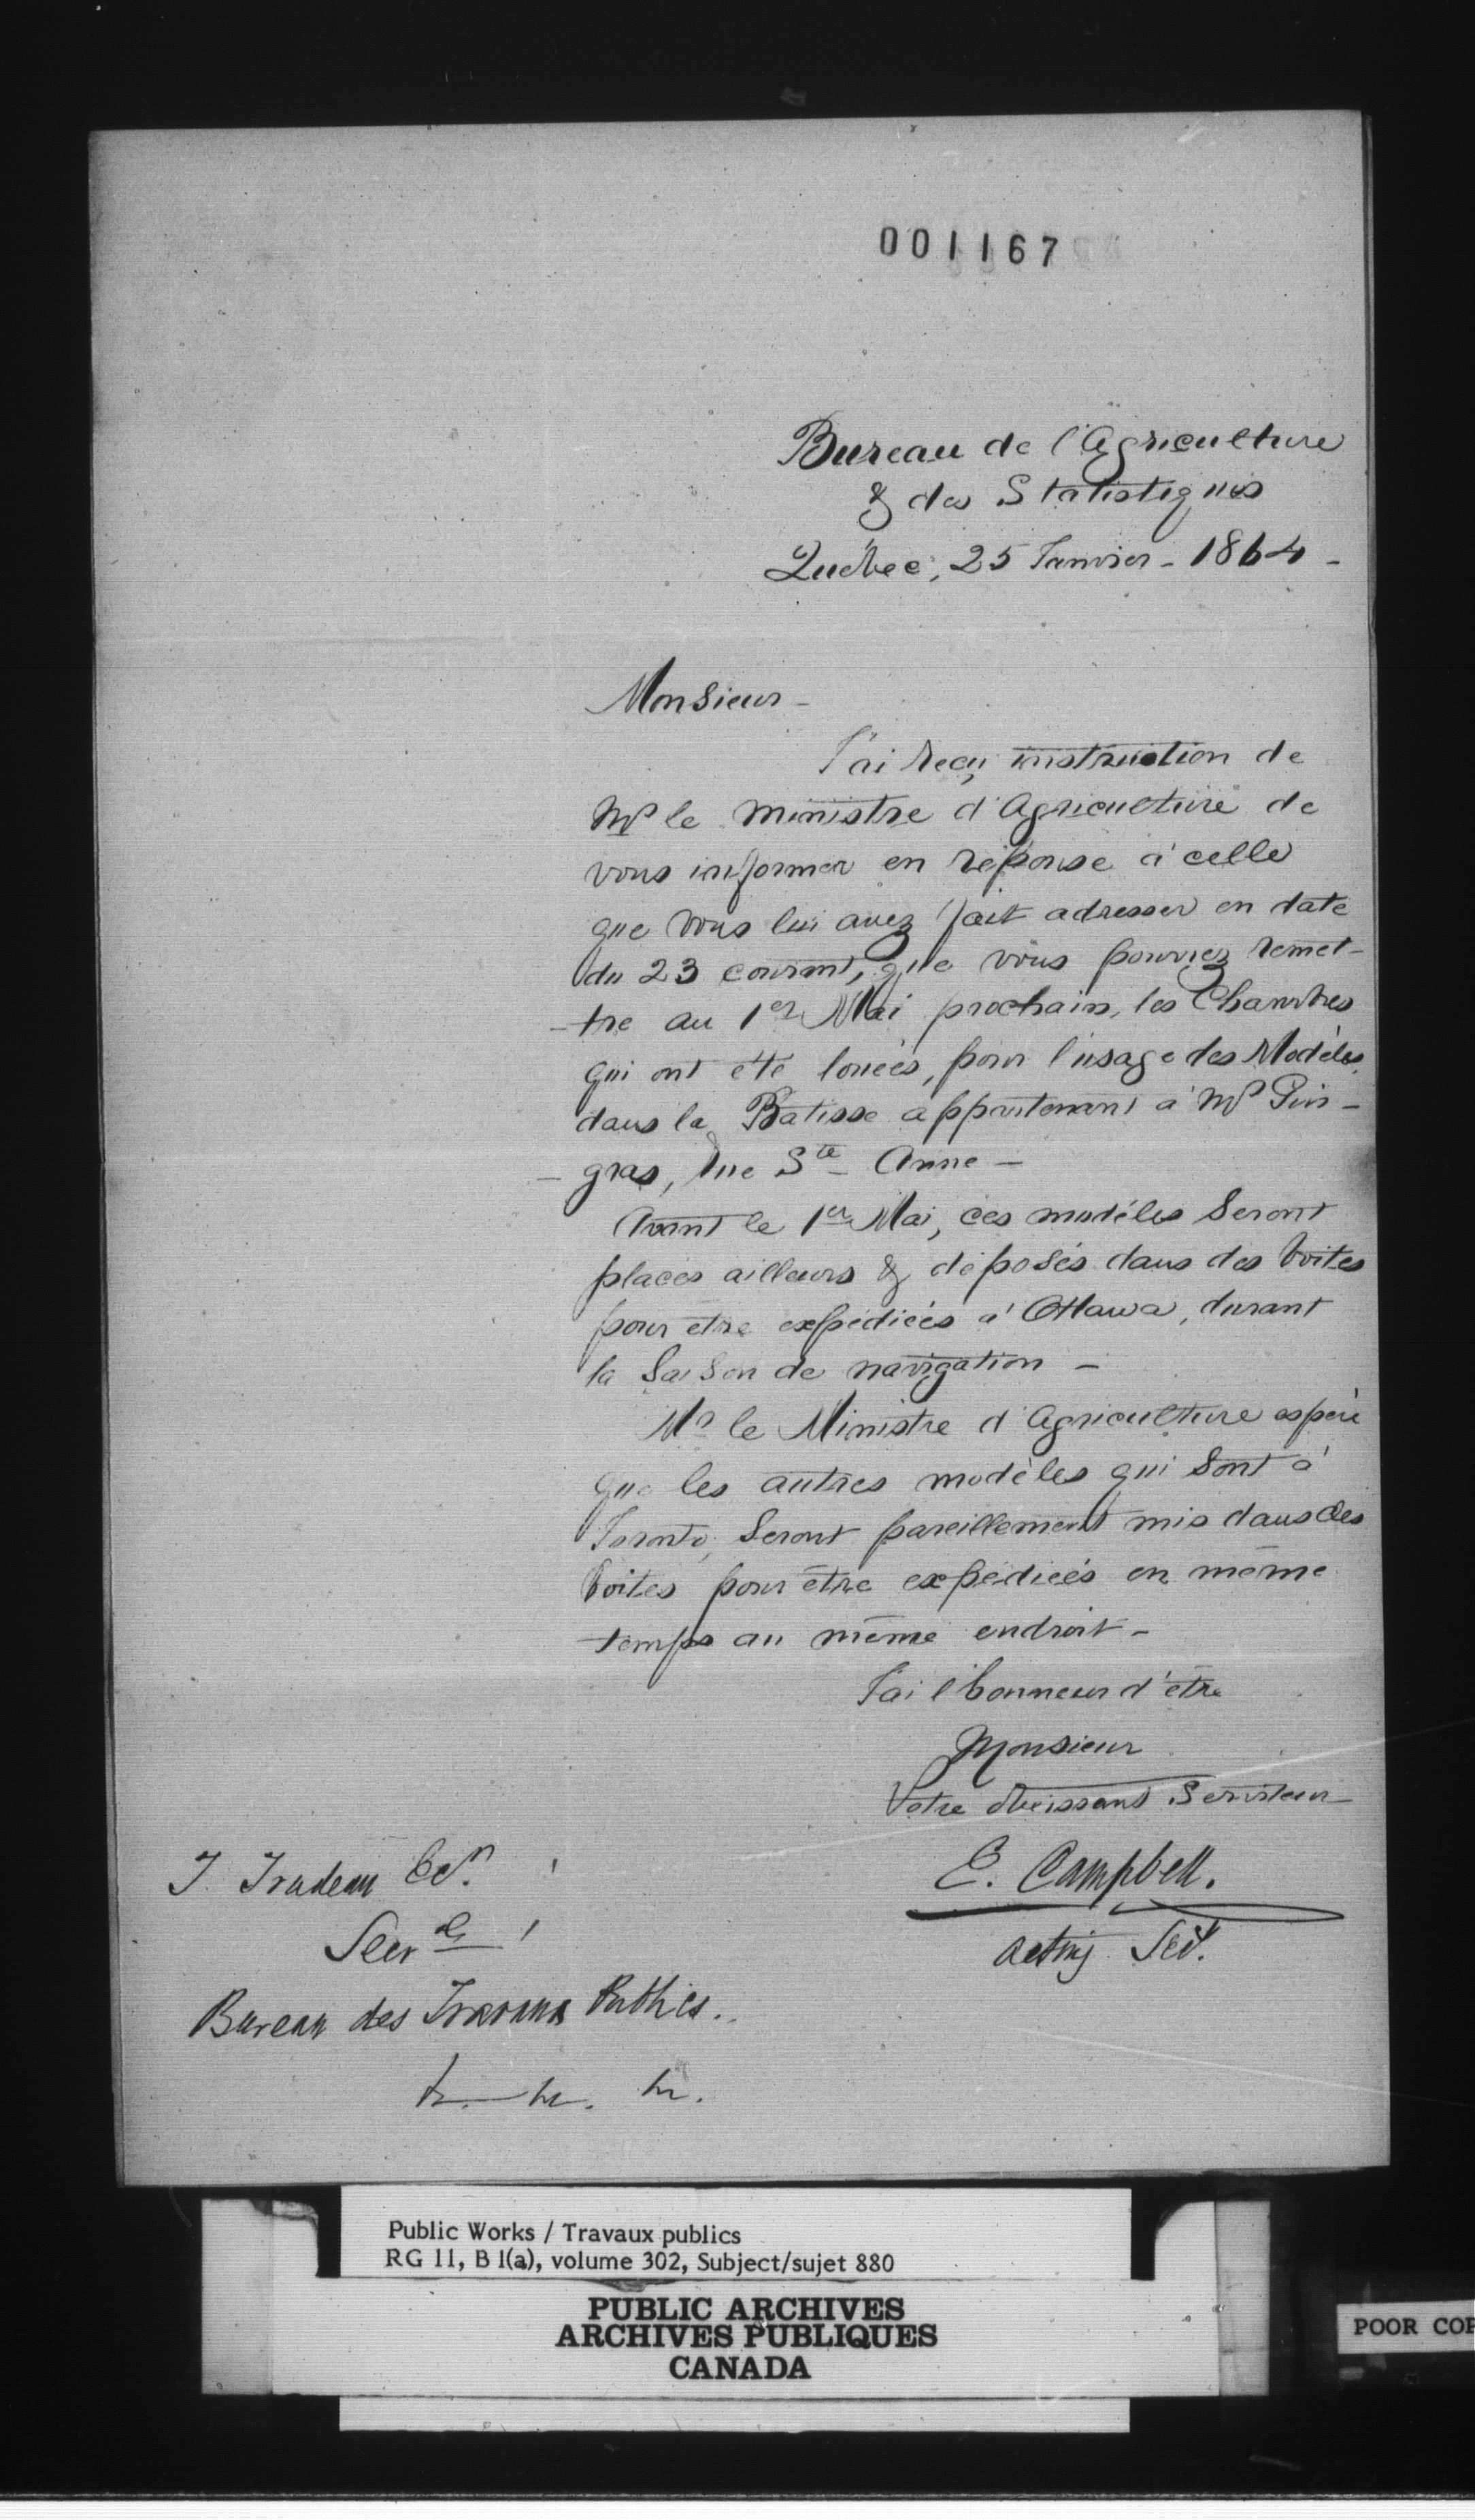 001167
Bureau de l'Agriculture
& des Statistiques
Québec, 25 Janvier - 1864 -
Monsieur -
J'ai reçu instruction de
Mr le ministre d'Agriculture de
vous informer en réponse à celle
que vous lui avez fait adresser en date
du 23 courant, que vous pourrez remet-
-tre au 1er Mai prochain, les Chambres
qui ont été louées, pour l'usage des Modèles,
dans la Batisse appartenant à Mr Pin-
-gras, rue Ste Anne -
Avant le 1er Mai, ces modéles seront
placés ailleurs & déposés dans des boites
pour etre expédiées à Ottawa, durant
la Saison de navigation -
Mr le Ministre d'Agriculture espère
que les autres modèles qui sont à
Toronto, seront pareillement mis dans des
boites pour être expédiées en même
temps au même endroit -
J'ai l'honneur d'être
Monsieur
Votre obeissant Serviteur
E. Campbell.
acting Sec.
T. Trudeau
Secre
Bureau des Travaux Publics.
Public Works / Travaux publics
RG 11, B 1(a), volume 302, Subject/sujet 880
PUBLIC ARCHIVES
ARCHIVES PUBLIQUES
CANADA
POOR COP